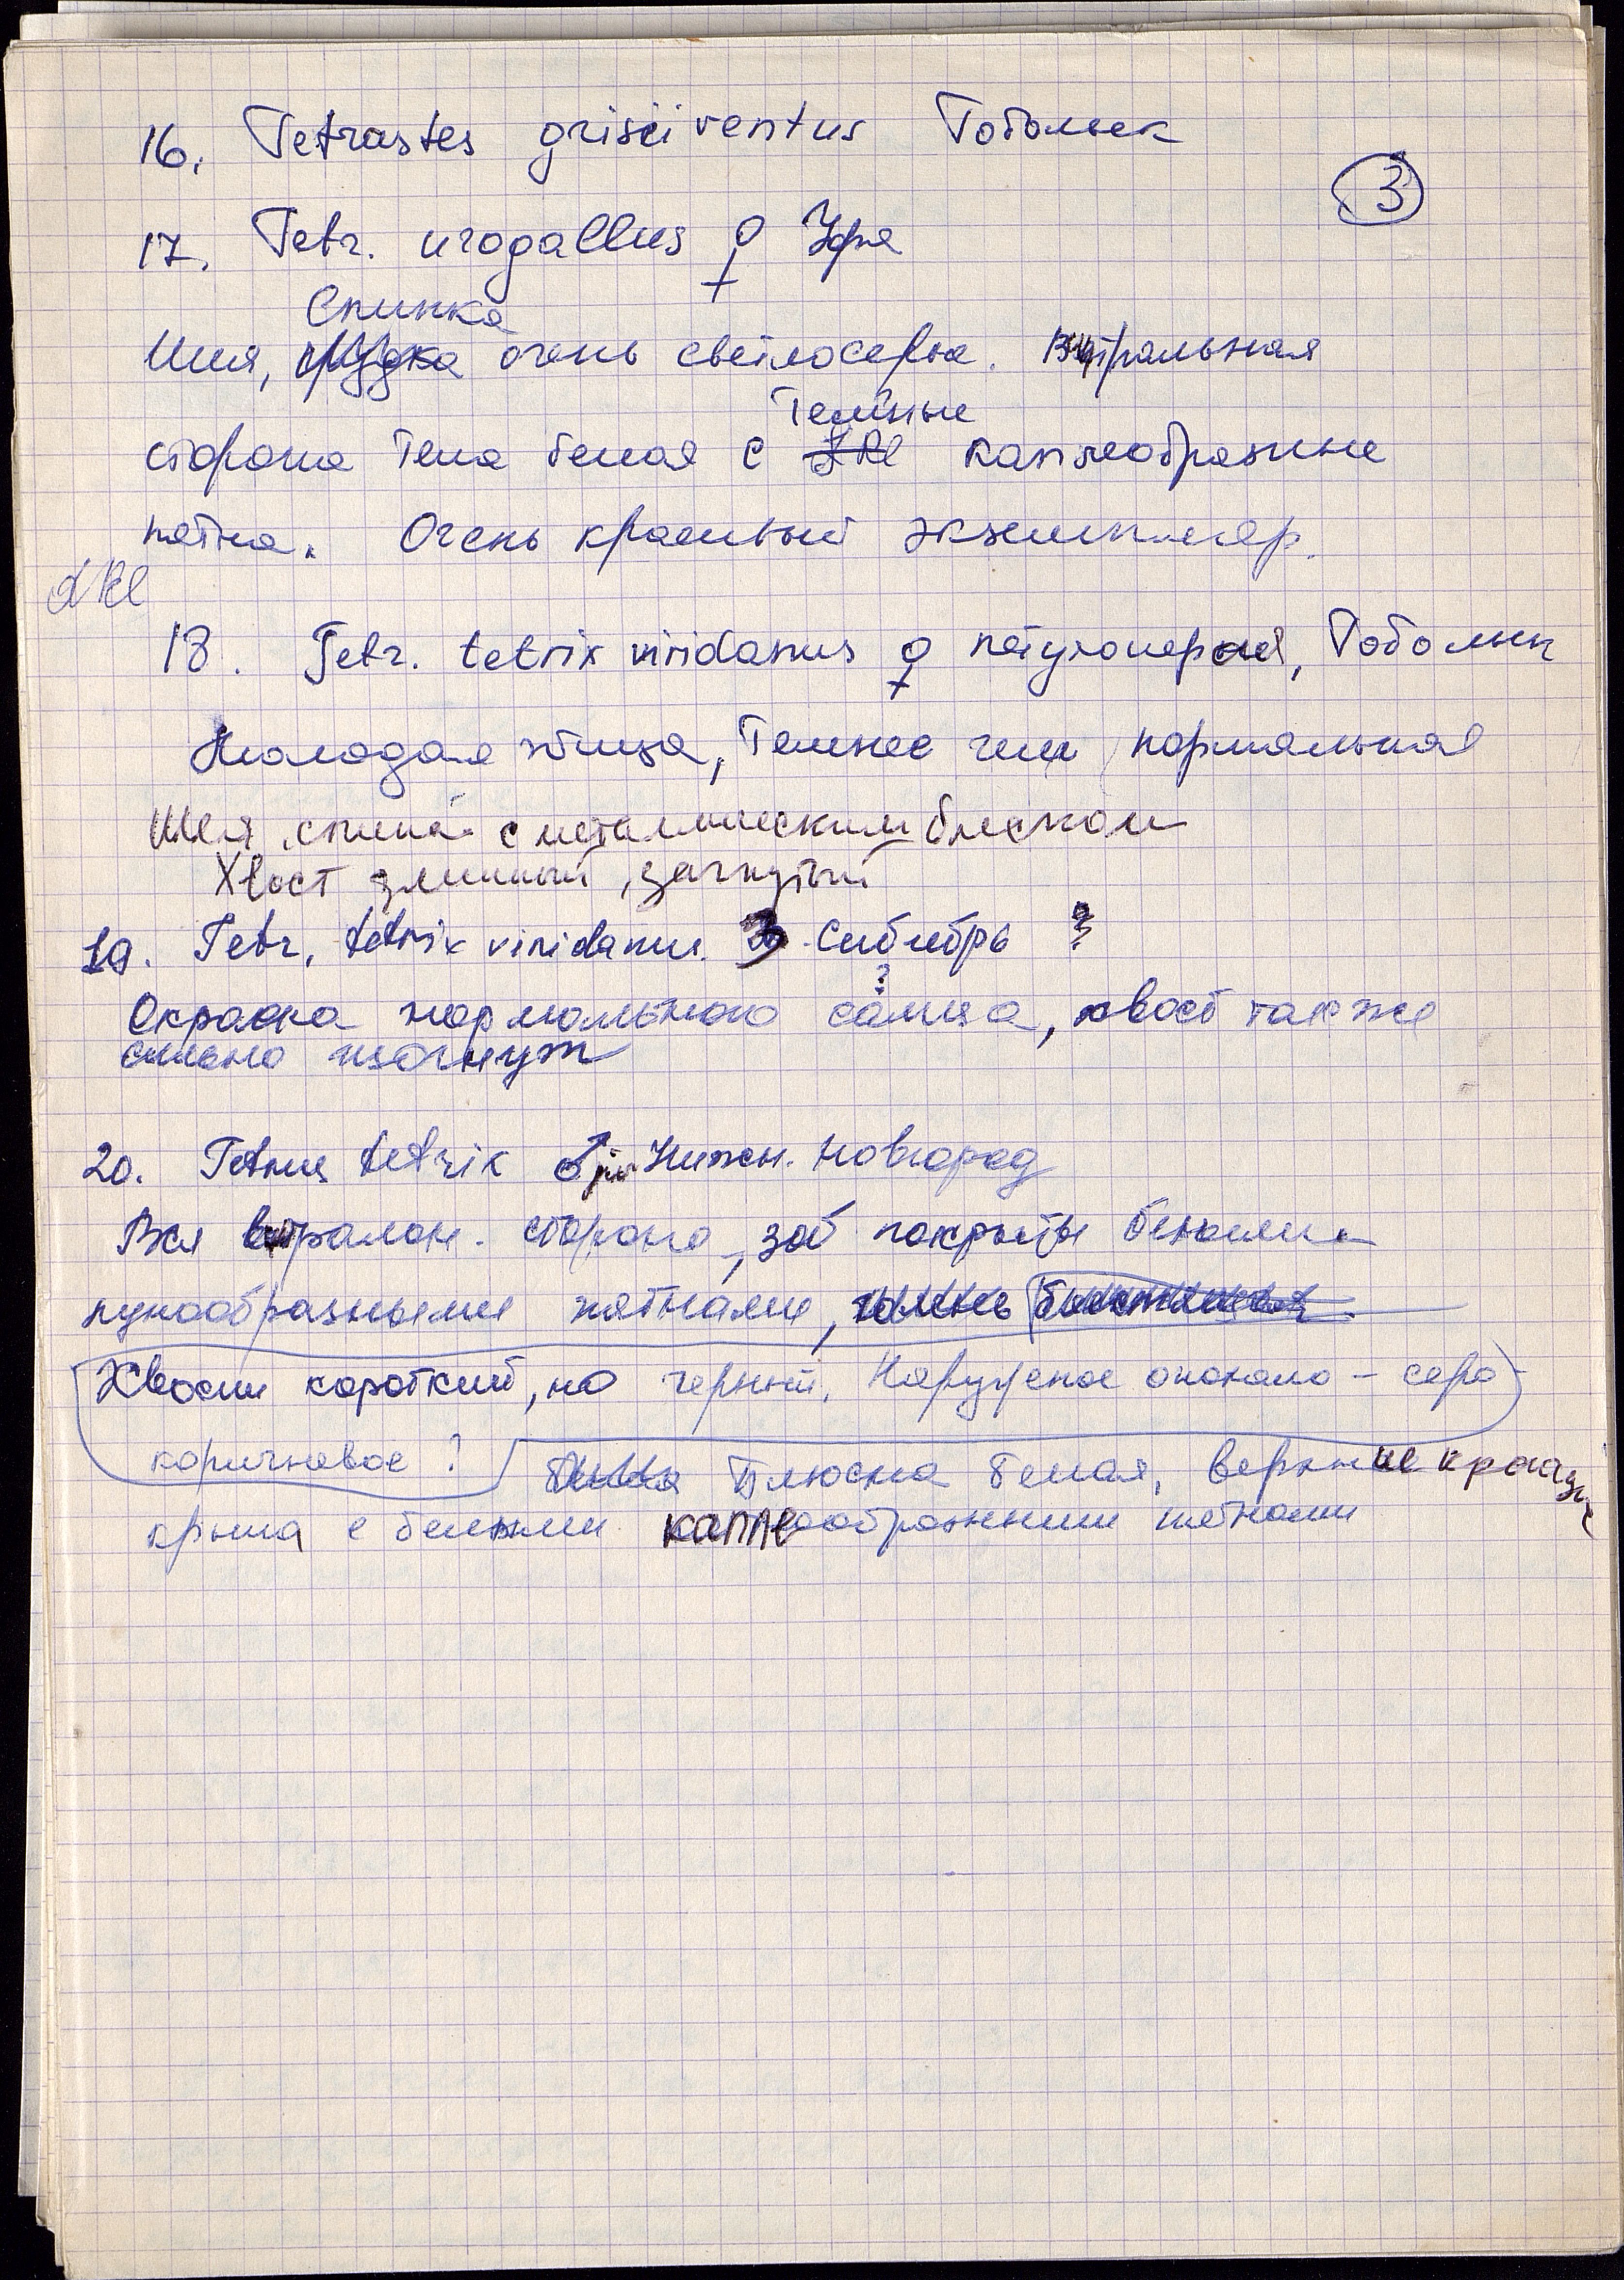 16. Tetrastes griseiventus Тобольск
3
17. Tetr. urogallus ♀ Уфа
Спинка
Шея, грудка очень светлосерые. Вентральная
темные
сторона тела белая с каплеобразные
пятна. Очень красивый экземпляр.
18. Tetr. tetrix viridanus ♀ петухоперая, Тобольск
Молодая птица, темнее чем нормальная
Шея, спина с металлическим блеском
Хвост длинный, загнутый
19. Tetr. tetrix viridanus. Сибирь ?
?
Окраска нормального самца, хвост также
сильно изогнут
20. Tetrus tetrix ♂ juv Нижн. Новгород
Вся вентралон. сторона, зоб покрыты белыми
лунообразными пятнами,
Хвост короткий, но черный. Наружное опахало - серо
коричневое ? Плюсна белая, верхние края
крыла с белыми каплеобразными пятнами